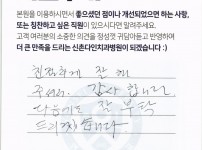 본원을 이용하시면서 좋으셨던 점이나 개선되었으면 하는 사항,
또는 칭찬하고 싶은 직원이 있으시다면 말씀해주세요.
고객 여러분의 소중한 의견을 정성껏 귀담아듣고 반영하여
더 큰 만족을 드리는 신촌다인치과병원이 되겠습니다 :)
친절하게 잘 해
주셔서 감사 합니다
다음에도 잘 부탁
드리겠습니다